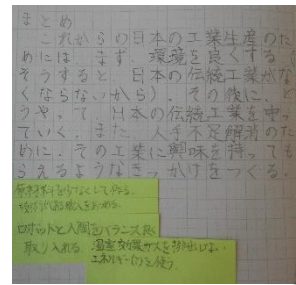 まとめ
これからの日本の工業生産のた
めには、まず、環境を良くする(
そうすると、日本の伝統工業がな
くならないから)。その後に、ど
うやって、日本の伝統工業を守っ
ていく。また、人手不足解消のた
めに、その工業に興味を持っても
らえるようなきっかけをつくる。
原材料を少なくして作る。
ロボットと人間をバランス良く
取り入れる。
温室効果ガスを排出しない
エネルギーを使う